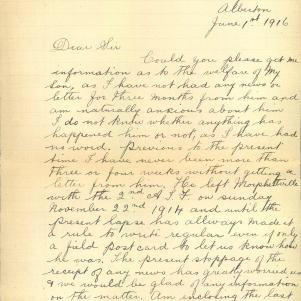 Alberton
June 1st 1916
Dear Sir
Could you please get me
information as to the welfare of My
Son, as I have not had any news or
letter for three months from him and
am naturally anxious about him
I do not know whether anything has
happened him or not, as I have had
no word. Previous to the present
time I have never been more than
three or four weeks without getting a
letter from him. He left Morphettville
with the 2nd A.I.F. on Sunday
November 22nd 1914 and until the
present lapse has allways made it
a rule to write regular even if only
a field postcard to let us know how
he was. The present stoppage of the
receipt of any news has greatly worried us
& we would be glad of any information
on the matter. Am inclosing the last